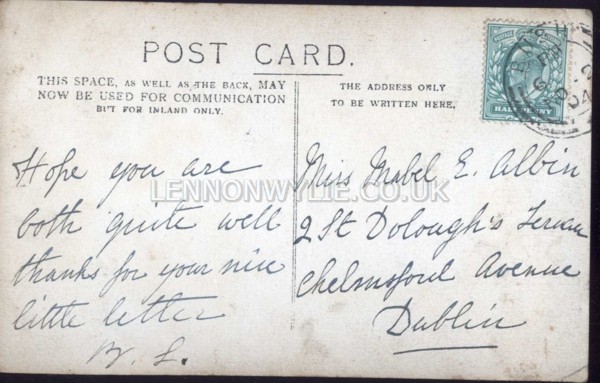 POST CARD.
THIS SPACE, AS WELL AS THE BACK, MAY
NOW BE USED FOR COMMUNICATION
BUT FOR INLAND ONLY.
THE ADDRESS ONLY
TO BE WRITTEN HERE.
Hope you are
both quite well
thanks for your nice
little letter
Miss Mabel E. Albin
2 St Dolough's Terrace
Chelmsford Avenue
Dublin
LENNONWYLIE.CO.UK